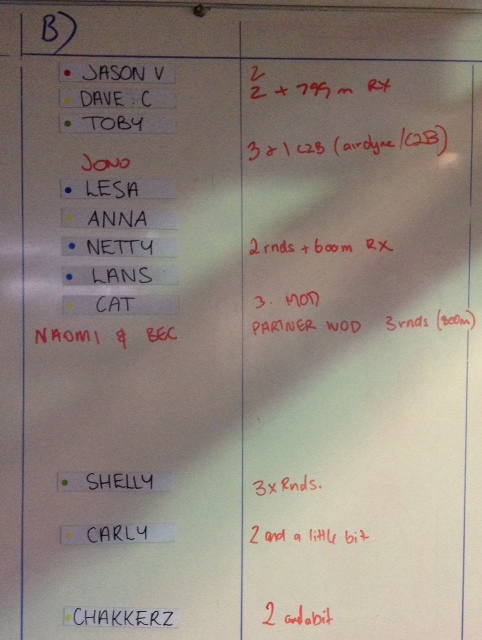 B)
JASON V 2
DAVE. C 2 + 799 m RX
TOBY
3 + 1 C2B (airdyne/C2B)
JONO
LESA
ANNA
NETTY 2 rnds + 600m RX
LANS
CAT 3. MOD
NAOMI & BEC PARTNER WOD 3 rnds (800m)
SHELLY 3 x Rnds.
CARLY 2 and a little bit
CHAKKERZ 2 and a bit